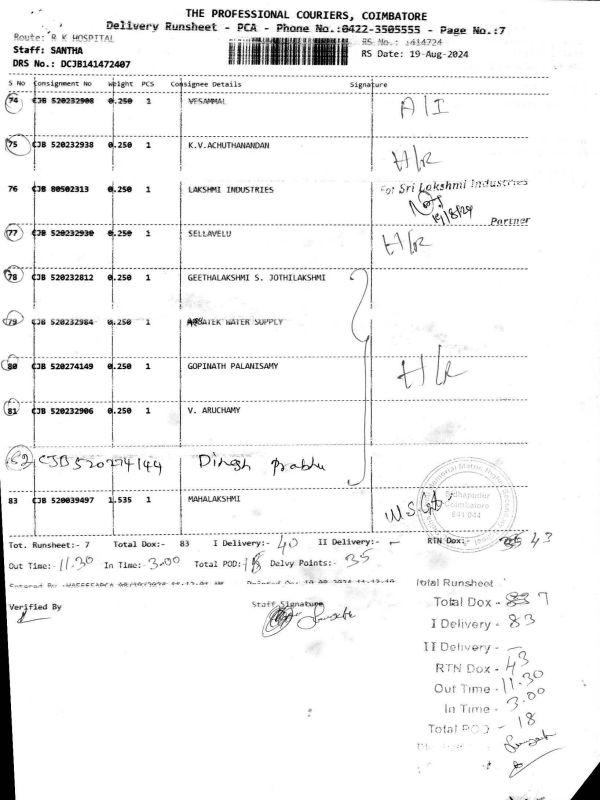 THE PROFESSIONAL COURIERS, COIMBATORE
Delivery Runsheet - PCA - Phone No.:0422-3505555 - Page No.:7
Route: R K HOSPITAL RS No.: 1414724
Staff: SANTHA RS Date: 19-Aug-2024
DRS No.: DCJB141472407
S No Consignment No Weight PCS Consignee Details Signature
74 CJB 520232908 0.250 1 VESAMMAL A/I
75 CJB 520232938 0.250 1 K.V.ACHUTHANANDAN H/R
76 CJB 80502313 0.250 1 LAKSHMI INDUSTRIES For Sri Lakshmi Industries
19/8/24
Partner
77 CJB 520232930 0.250 1 SELLAVELU H/R
78 CJB 520232812 0.250 1 GEETHALAKSHMI S. JOTHILAKSHMI
79 CJB 520232984 0.250 1 WATER SUPPLY
80 CJB 520274149 0.250 1 GOPINATH PALANISAMY H/R
81 CJB 520232906 0.250 1 V. ARUCHAMY
82 CJB 520274144 Dinesh Prabhu
83 CJB 520039497 1.535 1 MAHALAKSHMI
Coimbatore
641 044
Tot. Runsheet:- 7 Total Dox:- 83 I Delivery:- 40 II Delivery:- - RTN Dox:- 43
Out Time:- 11.30 In Time:- 3.00 Total POD:- 18 Delvy Points:- 35
Verified By Staff Signature
Total Runsheet
Total Dox - 83 7
I Delivery - 83
II Delivery - -
RTN Dox - 43
Out Time - 11.30
In Time - 3.00
Total POD - 18